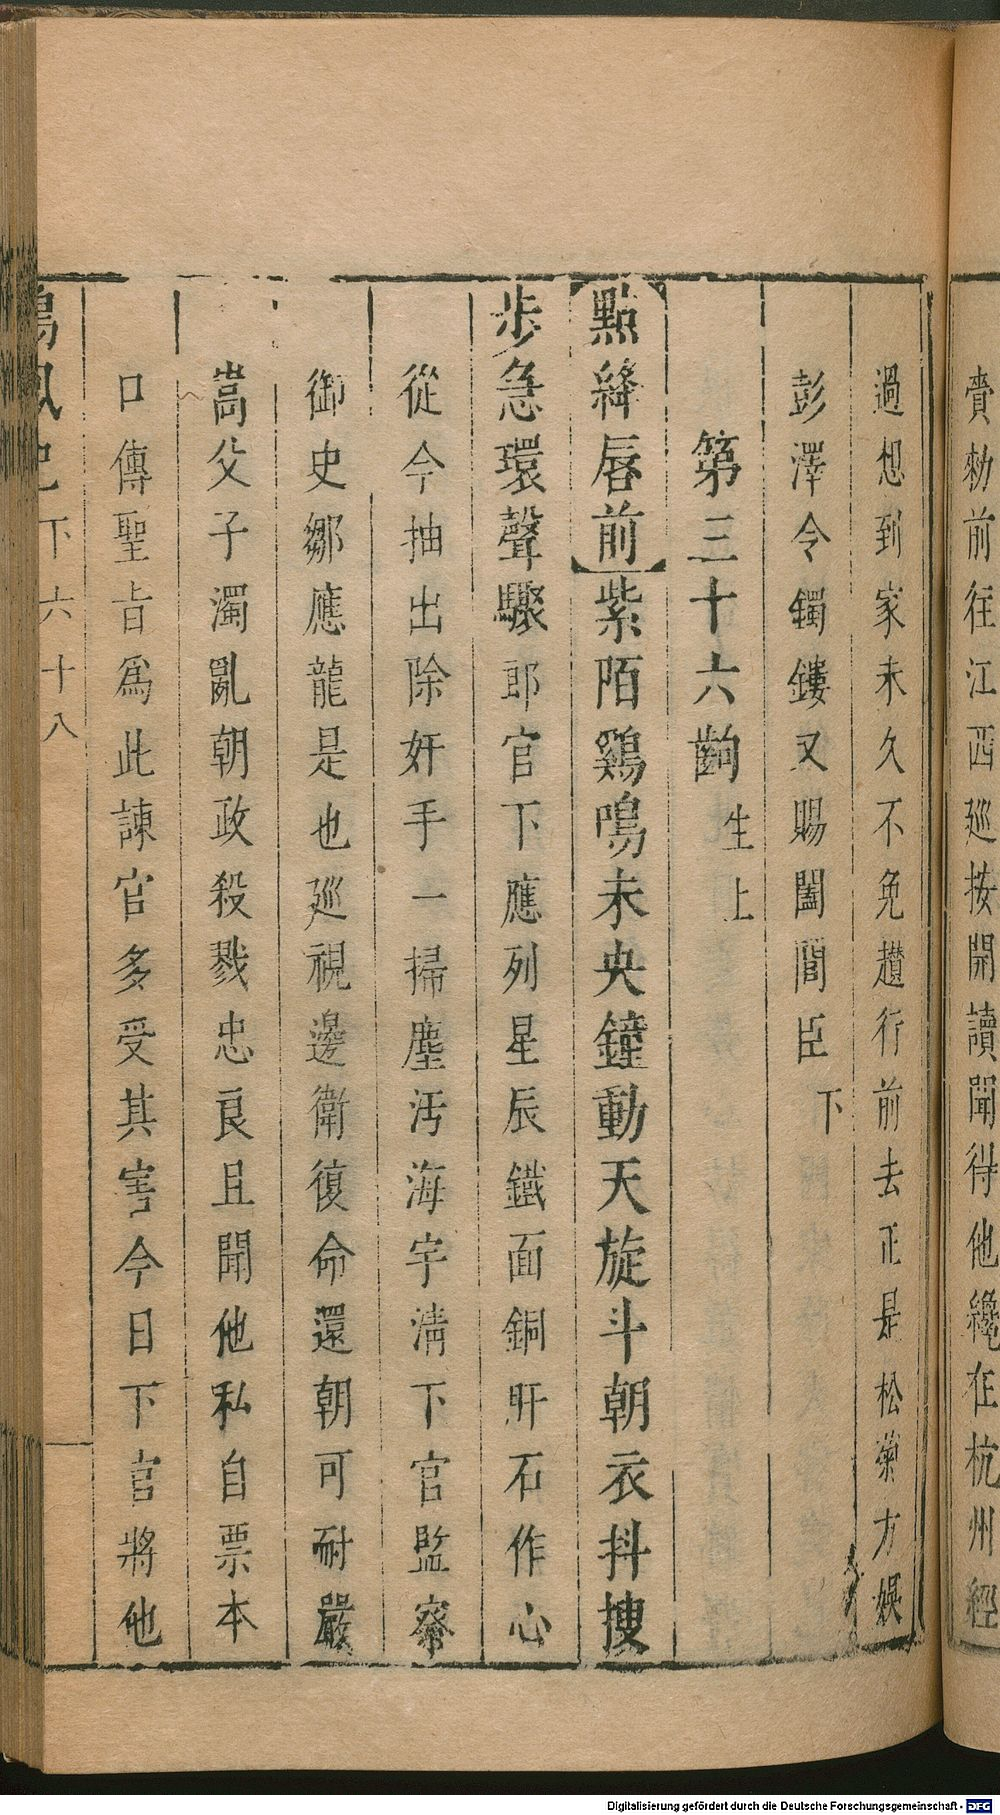 賫勑前往江西廵按開讀聞得他纔在杭州經
過想到家未久不免趲行前去正是松菊方娛
彭澤令鐲鏤又賜闔閭臣下
第三十六齣生上
點絳唇前紫陌鷄鳴未央鐘動天旋斗朝衣抖搜
步急環聲驟郎官下應列星辰鐵面銅肝石作心
從今抽出除奸手一掃塵汚海宇淸下官監察
御史鄒應龍是也廵視邊衛復命還朝可耐嚴
嵩父子濁亂朝政殺戮忠良且聞他私自票本
口傳聖旨爲此諫官多受其害今日下官將他
鳴鳳記下六十八
Digitalisierung gefördert durch die Deutsche Forschungsgemeinschaft - DFG